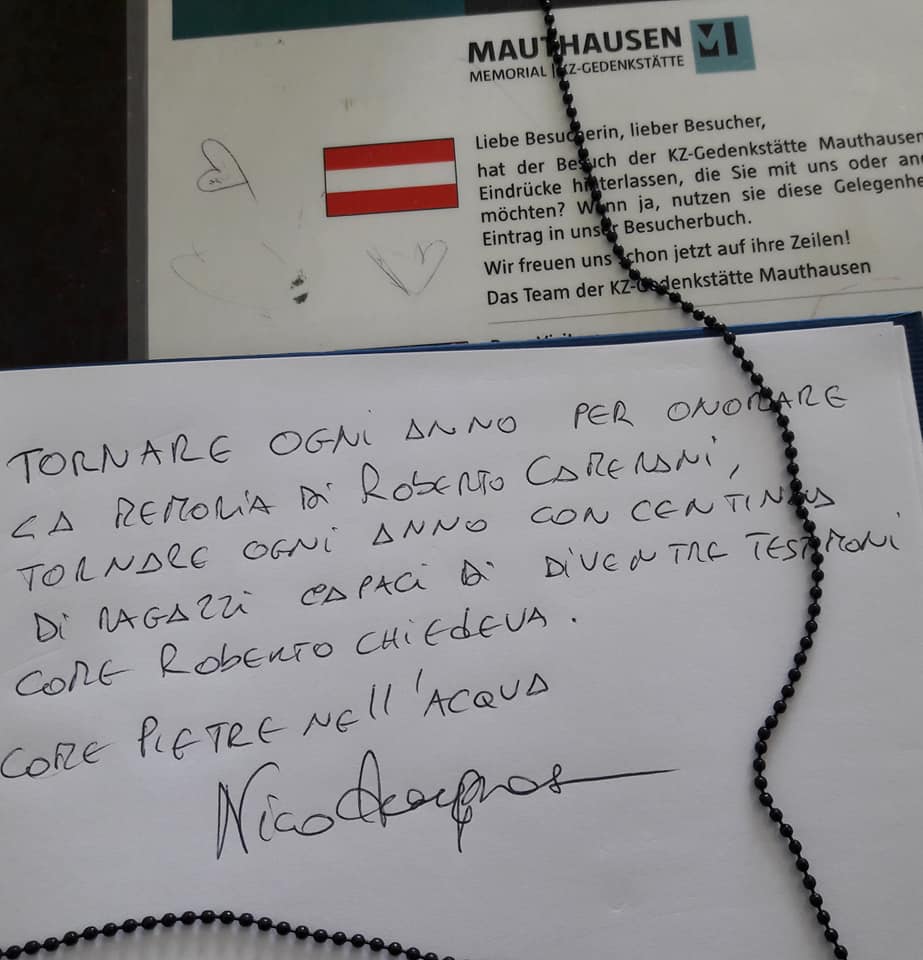 MAUTHAUSEN
MEMORIAL | KZ-GEDENKSTÄTTE
Liebe Besucherin, lieber Besucher,
hat der Besuch der KZ-Gedenkstätte Mauthausen
Eindrücke hinterlassen, die Sie mit uns oder
möchten? Wenn ja, nutzen sie diese
Eintrag in unser Besucherbuch.
Wir freuen uns schon jetzt auf ihre Zeilen!
Das Team der KZ-Gedenkstätte Mauthausen
TORNARE OGNI ANNO PER ONORARE
LA MEMORIA DI ROBERTO CAMERANI,
TORNARE OGNI ANNO CON CENTINAIA
DI RAGAZZI CAPACI DI DIVENTRE TESTIMONI
COME ROBERTO CHIEDEVA.
COME PIETRE NELL'ACQUA
Nico